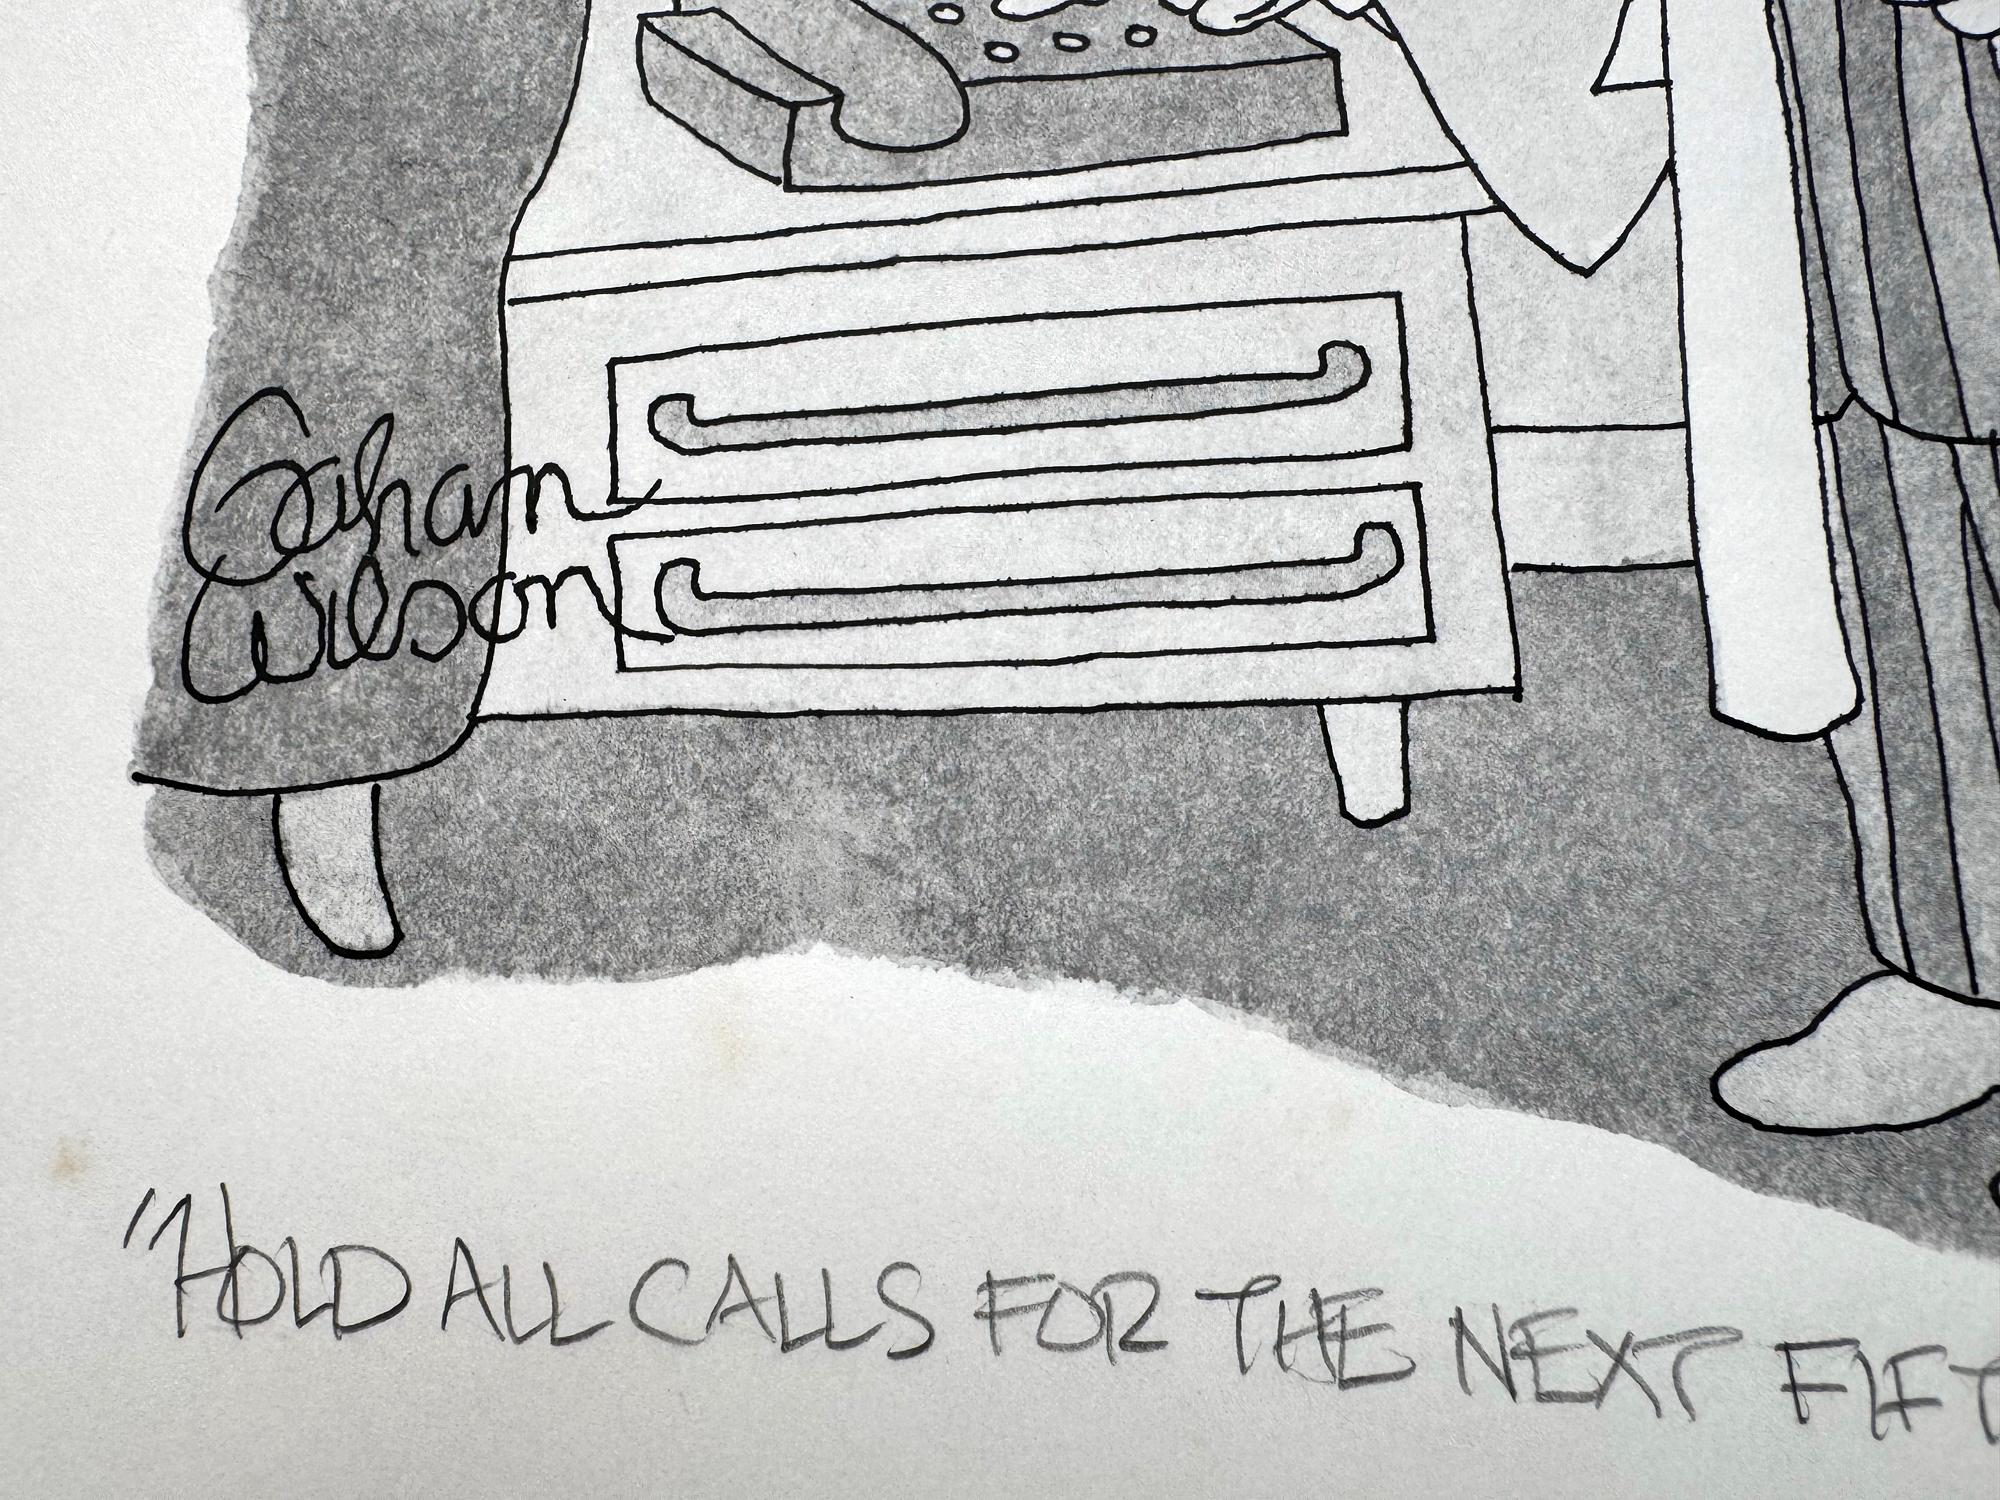 Gahan
Wilson
"HOLD ALL CALLS FOR THE NEXT FIFT